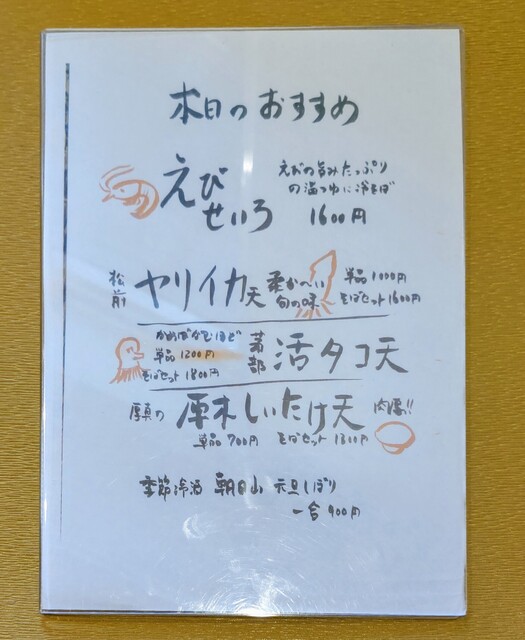 本日のおすすめ
えび
せいろ
えびの旨みたっぷり
の温つゆに冷そば
1600円
松前
ヤリイカ天
柔か〜い
旬の味
単品1000円
そばセット1600円
かめばかむほど
単品1200円
そばセット1800円
茅部
活タコ天
厚真の
原木しいたけ天
肉厚!!
単品700円 そばセット1310円
季節冷酒 朝日山 元旦しぼり
一合900円